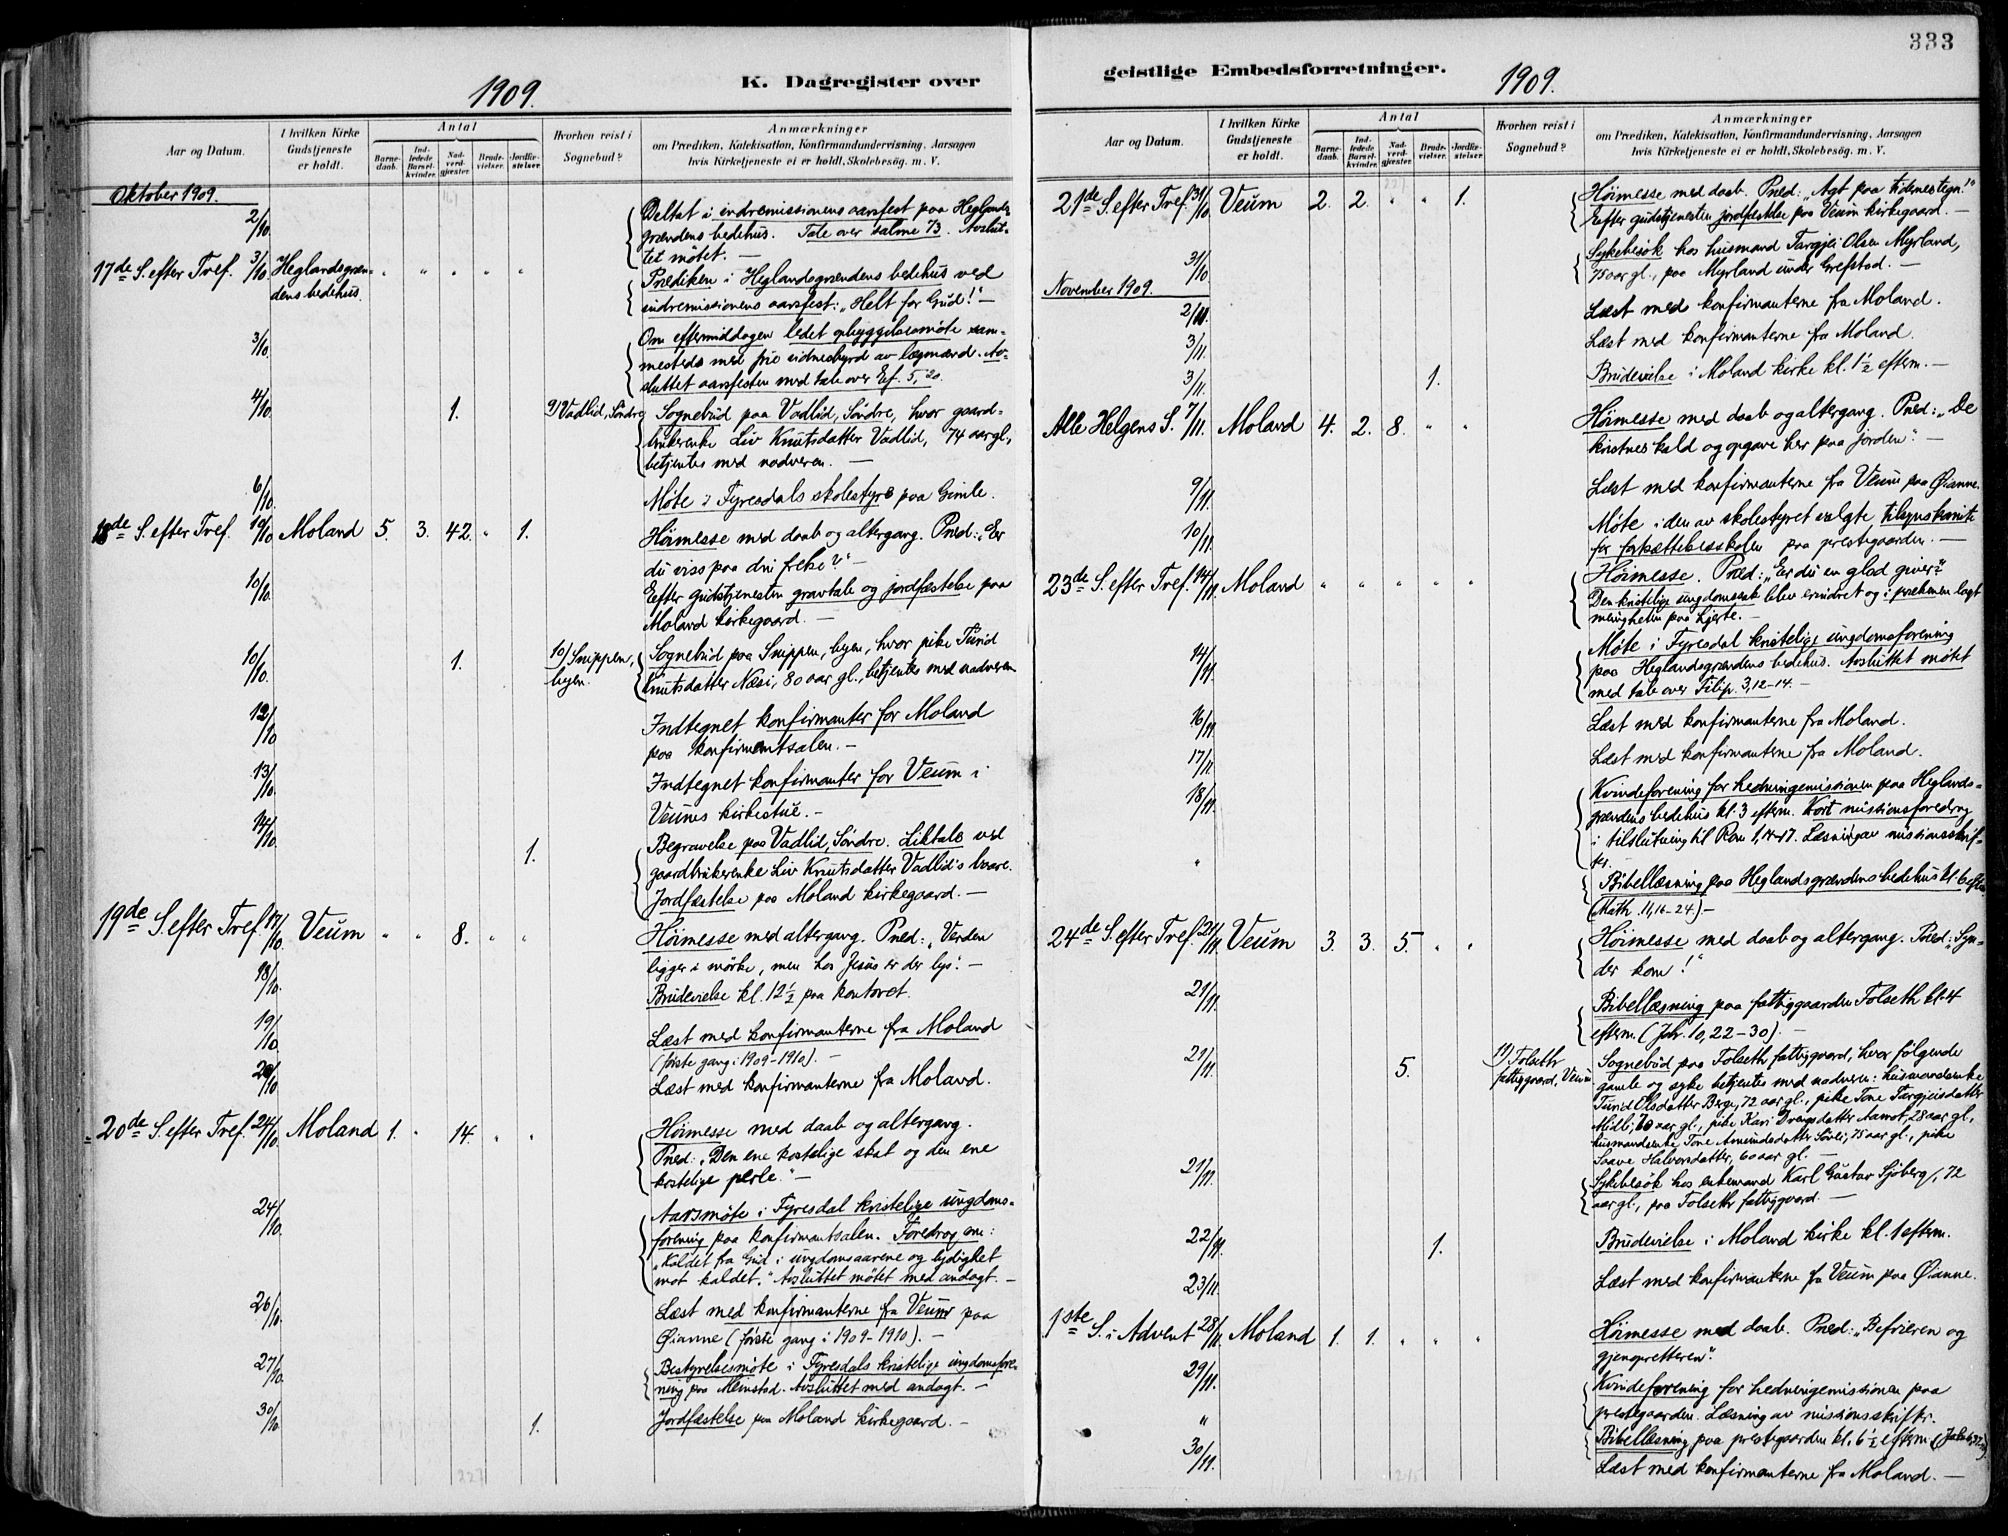 333
K. Dagregister over
geistlige Embedsforretninger.
1909.
1909.
Aar og Datum.
I hvilken Kirke
Gudstjeneste
er holdt.
Antal
Barne-
daab.
Ind-
ledede
Barsel-
kvinder.
Nad-
verd-
gjæster.
Brude-
vielser.
Jordfæ-
stelser.
Hvorhen reist i
Sognebud?
Anmærkninger
om Prædiken, Katekisation, Konfirmandundervisning, Aarsagen
hvis Kirketjeneste ei er holdt, Skolebesøg. m. V.
Oktober 1909.
2/10. Deltat i indremissionens aarsfest paa Heglands-
grændens bedehus. Tale over salme 73. Avslut-
tet mötet. —
17de S. efter Tref. 3/10 Heglandsgræn- " " " " " Prædiken i Heglandsgrændens bedehus ved
dens bedehus. indremissionens aarsfest: „Helt for Gud!" —
3/10. Om eftermiddagen ledet opbyggelsesmöte sam-
mesteds med frie vidnesbyrd av lægmænd. Av-
sluttet aarsfesten med tale over Ef. 5, 20.
4/10. 1. 9) Vadlid, Söndre Sognebud paa Vadlid, Söndre, hvor gaard-
brukerenke Liv Knutsdatter Vadlid, 74 aar gl.,
betjentes med nadveren. —
6/10. Möte i Fyresdals skolestyre paa Gimle.
18de S. efter Tref. 10/10 Moland 5. 3. 42. " 1. Höimesse med daab og altergang. Præd.: „Er
du viss paa din frelse?" —
10/10. Efter gudstjenesten gravtale og jordfæstelse paa
Moland kirkegaard. —
10/10. 1. 10) Snippen, Sognebud paa Snippen, byen, hvor pike Turid
byen. Knutsdatter Næsi, 80 aar gl., betjentes med nadveren
12/10 Indtegnet konfirmanter for Moland
paa konfirmantsalen. —
13/10. Indtegnet konfirmanter for Veum i
Veums kirkestue. —
14/10. 1. Begravelse paa Vadlid, Söndre. Liktale ved
gaardbrukerenke Liv Knutsdatter Vadlid's baare.
Jordfæstelse paa Moland kirkegaard. —
19de S. efter Tref. 17/10. Veum " " 8. " " Höimesse med altergang. Præd.: „Verden
ligger i mörke, men hos Jesus er der lys". —
18/10. Brudevielse kl. 12½ paa kontoret.
19/10 Læst med konfirmanterne fra Moland
(förste gang i 1909-1910). —
20/10 Læst med konfirmanterne fra Moland.
20de S. efter Tref. 24/10. Moland 1. " 14. " " Höimesse med daab og altergang.
Præd.: „Den ene kostelige skat og den ene
kostelige perle." —
24/10. Aarsmöte i Fyresdal kristelige ungdoms-
forening paa konfirmantsalen. Foredrag om:
„Kaldet fra Gud i ungdomsaarene og lydighet
mot kaldet." Avsluttet mötet med andagt. —
26/10. Læst med konfirmanterne fra Veum paa
Øianne (förste gang i 1909-1910). —
27/10. Bestyrelsesmöte i Fyresdals kristelige ungdomsfore-
ning paa Meinstad. Avsluttet med andagt. —
30/10. 1. Jordfæstelse paa Moland kirkegaard. —
Aar og Datum.
I hvilken Kirke
Gudstjeneste
er holdt.
Antal
Barne-
daab.
Ind-
ledede
Barsel-
kvinder.
Nad-
verd-
gjæster.
Brude-
vielser.
Jordfæ-
stelser.
Hvorhen reist i
Sognebud?
Anmærkninger
om Prædiken, Katekisation, Konfirmandundervisning, Aarsagen
hvis Kirketjeneste ei er holdt, Skolebesøg. m. V.
21de S. efter Tref. 31/10. Veum 2. 2. " " 1. Höimesse med daab. Præd.: „Agt paa tidenes tegn!"
Efter gudstjenesten jordfæstelse paa Veum kirkegaard. —
31/10. Sykebesök hos husmand Targjei Olsen Myrland,
75 aar gl., paa Myrland under Grefstad. —
November 1909.
2/11. Læst med konfirmanterne fra Moland.
3/11. Læst med konfirmanterne fra Moland.
3/11. 1. Brudevielse i Moland kirke kl. 1½ efterm. —
Alle Helgens S. 7/11. Moland 4. 2. 8. " " Höimesse med daab og altergang. Præd.: „De
kristnes kald og opgave her paa jorden". —
9/11. Læst med konfirmanterne fra Veum paa Øianne.
10/11. Möte i den av skolestyret valgte tilsynskomite
for fortsættelsesskolen paa prestegaarden. —
23de S. efter Tref. 14/11. Moland " " " " " Höimesse. Præd.: „Er du en glad giver?"
Den kristelige ungdomssak blev erindret og i prækenen lagt
menigheten paa hjerte. —
14/11. Möte i Fyresdal kristelige ungdomsforening
paa Heglandsgrændens bedehus. Avsluttet mötet
med tale over Filip. 3, 12-14. —
16/11. Læst med konfirmanterne fra Moland.
17/11 Læst med konfirmanterne fra Moland.
18/11. Kvindeforening for hedningemissionen paa Heglands-
grændens bedehus kl. 3 efterm. Kort missionsforedrag
i tilslutning til Rom 1, 14-17. Læsning av missionsskrif-
ter.
" Bibellæsning paa Heglandsgrændens bedehus kl. 6 efterm.
(Math. 11, 16-24). —
24de S. efter Tref. 21/11 Veum 3. 3. 5. " " Höimesse med daab og altergang. Præd.: „Syn-
der kom!"
21/11. Bibellæsning paa fattiggaarden Folseth kl. 4
efterm. (Joh. 10, 22-30). —
21/11. 5. 11) Folseth Sognebud paa Folseth fattiggaard, hvor fölgende
fattiggaard, Veum gamle og syke betjentes med nadveren: husmandsenke
Turid Olsdatter Berge, 72 aar gl., pike Tone Targjeisdatter
Midli, 70 aar gl., pike Kari Dreng­sdatter Aamot, 28 aar gl.,
husmandsenke Tone Aanundsdatter Sövli, 75 aar gl., pike
Saave Halvorsdatter, 60 aar gl. —
21/11. Sykebesök hos enkemand Karl Gustav Sjöberg, 72
aar gl., paa Folseth fattiggaard. —
22/11. 1. Brudevielse i Moland kirke kl. 1 efterm.
23/11. Læst med konfirmanterne fra Veum paa Øianne.
1ste S. i Advent 28/11. Moland 1. 1. " " " Höimesse med daab. Præd.: „Befrieren og
gjenopretteren".
29/11. Kvindeforening for hedningemissionen paa
prestegaarden. Læsning av missionsskrifter.
" Bibellæsning paa prestegaarden kl. 6½ efterm.
30/11. Læst med konfirmanterne fra Moland. —